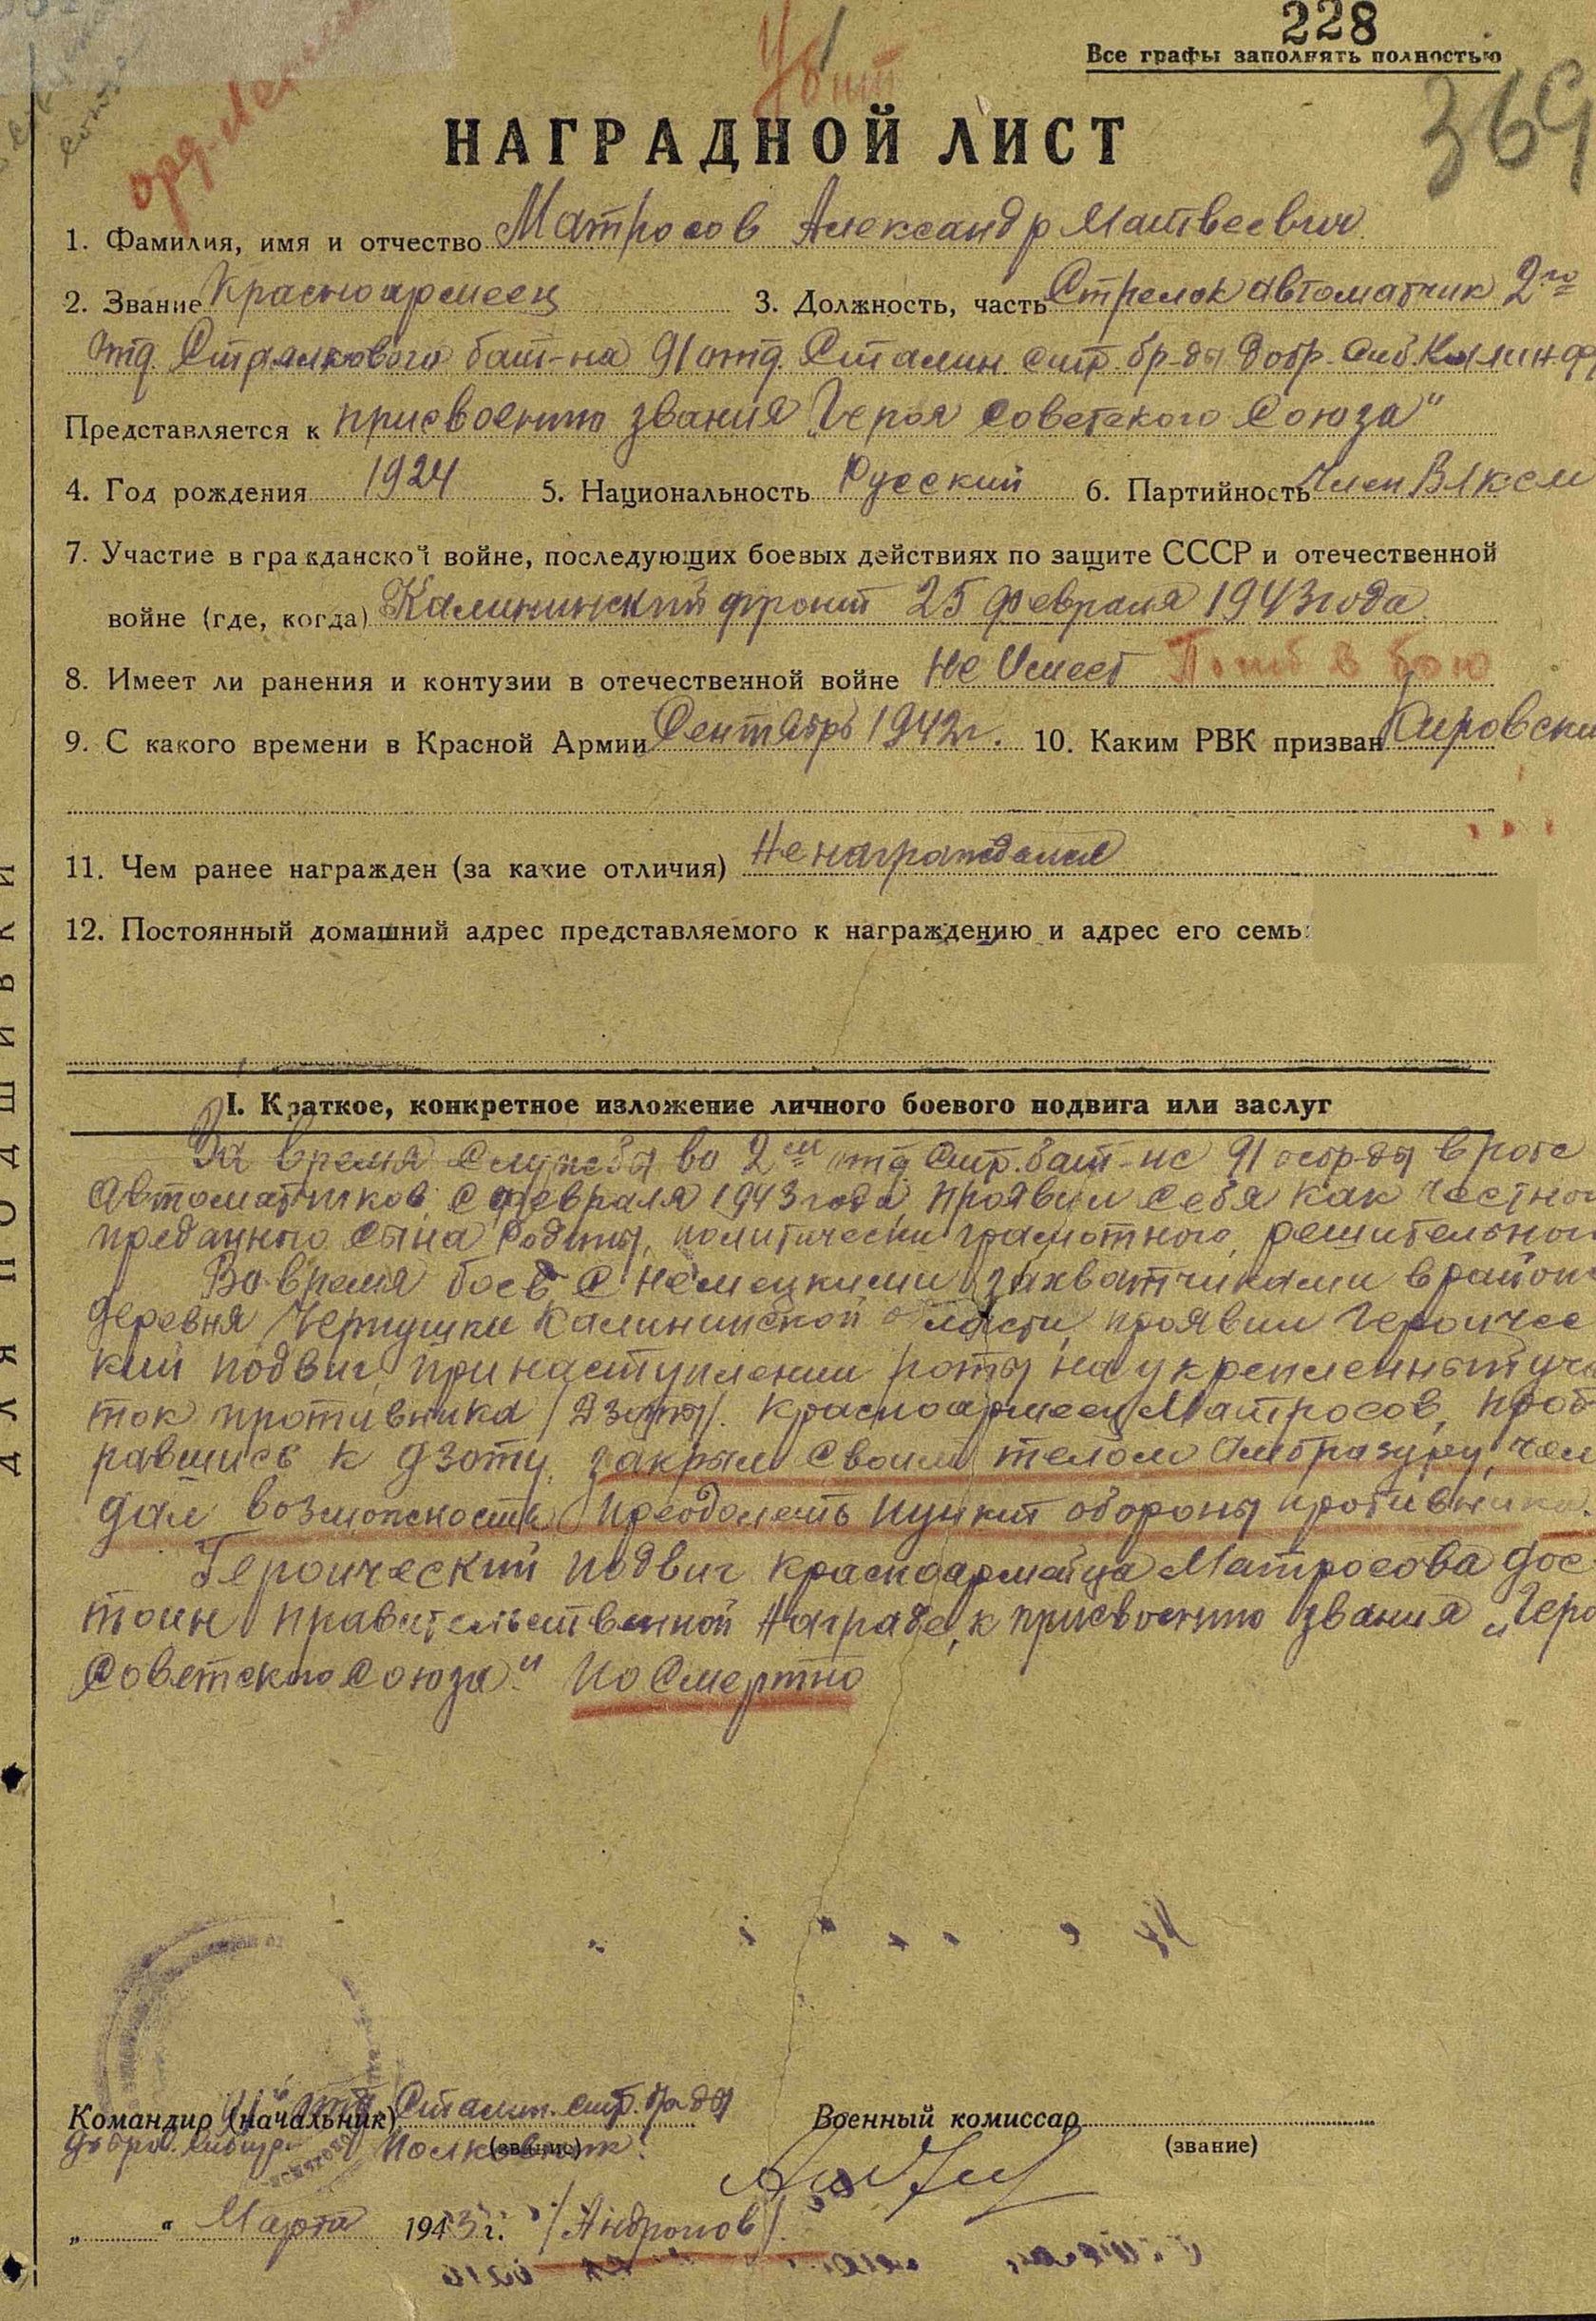 228
Все графы заполнять полностью
Убит
369
орд. Ленина
НАГРАДНОЙ ЛИСТ
1. Фамилия, имя и отчество Матросов Александр Матвеевич
2. Звание Красноармеец 3. Должность, часть Стрелок автоматчик 2го
отд. Стрелкового бат-на 91 отд. Сталин. стр. бр-ды добр. сиб. Калин. ф
Представляется к присвоению звания „Героя Советского Союза"
4. Год рождения 1924 5. Национальность Русский 6. Партийность Член ВЛКСМ
7. Участие в гражданской войне, последующих боевых действиях по защите СССР и отечественной
войне (где, когда) Калининский фронт 25 февраля 1943 года
8. Имеет ли ранения и контузии в отечественной войне Не Имеет Погиб в бою
9. С какого времени в Красной Армии Сентябрь 1942 г. 10. Каким РВК призван Кировски
11. Чем ранее награжден (за какие отличия) Не награждался
12. Постоянный домашний адрес представляемого к награждению и адрес его семь
ДЛЯ ПОДШИВКИ
I. Краткое, конкретное изложение личного боевого подвига или заслуг
За время службы во 2ом отд стр. бат-не 91 о стр-ды в роте
Автоматчиков, с февраля 1943 года проявил себя как честно
преданного сына Родины, политически грамотного, решительног
Во время боев с немецкими захватчиками в район
деревня Чернушки Калининской области, проявил Героичес
кий подвиг, при наступлении роты на укрепленный уча
ток противника /Дзоты/. Красноармеец Матросов, проб
равшись к дзоту, закрыл своим телом Амбразуру, чем
дал возможность преодолеть пункт обороны противника.
Героический подвиг красноармейца Матросова дос
тоин правительственной Награде, к присвоению звания „Геро
Советского Союза" по Смертно
Командир (начальник) 91й отд Сталин. стр. бр-ды
добров. Сибир. Полковник
(звание)
Военный комиссар
(звание)
„ " Марта 1943 г. /Андронов/